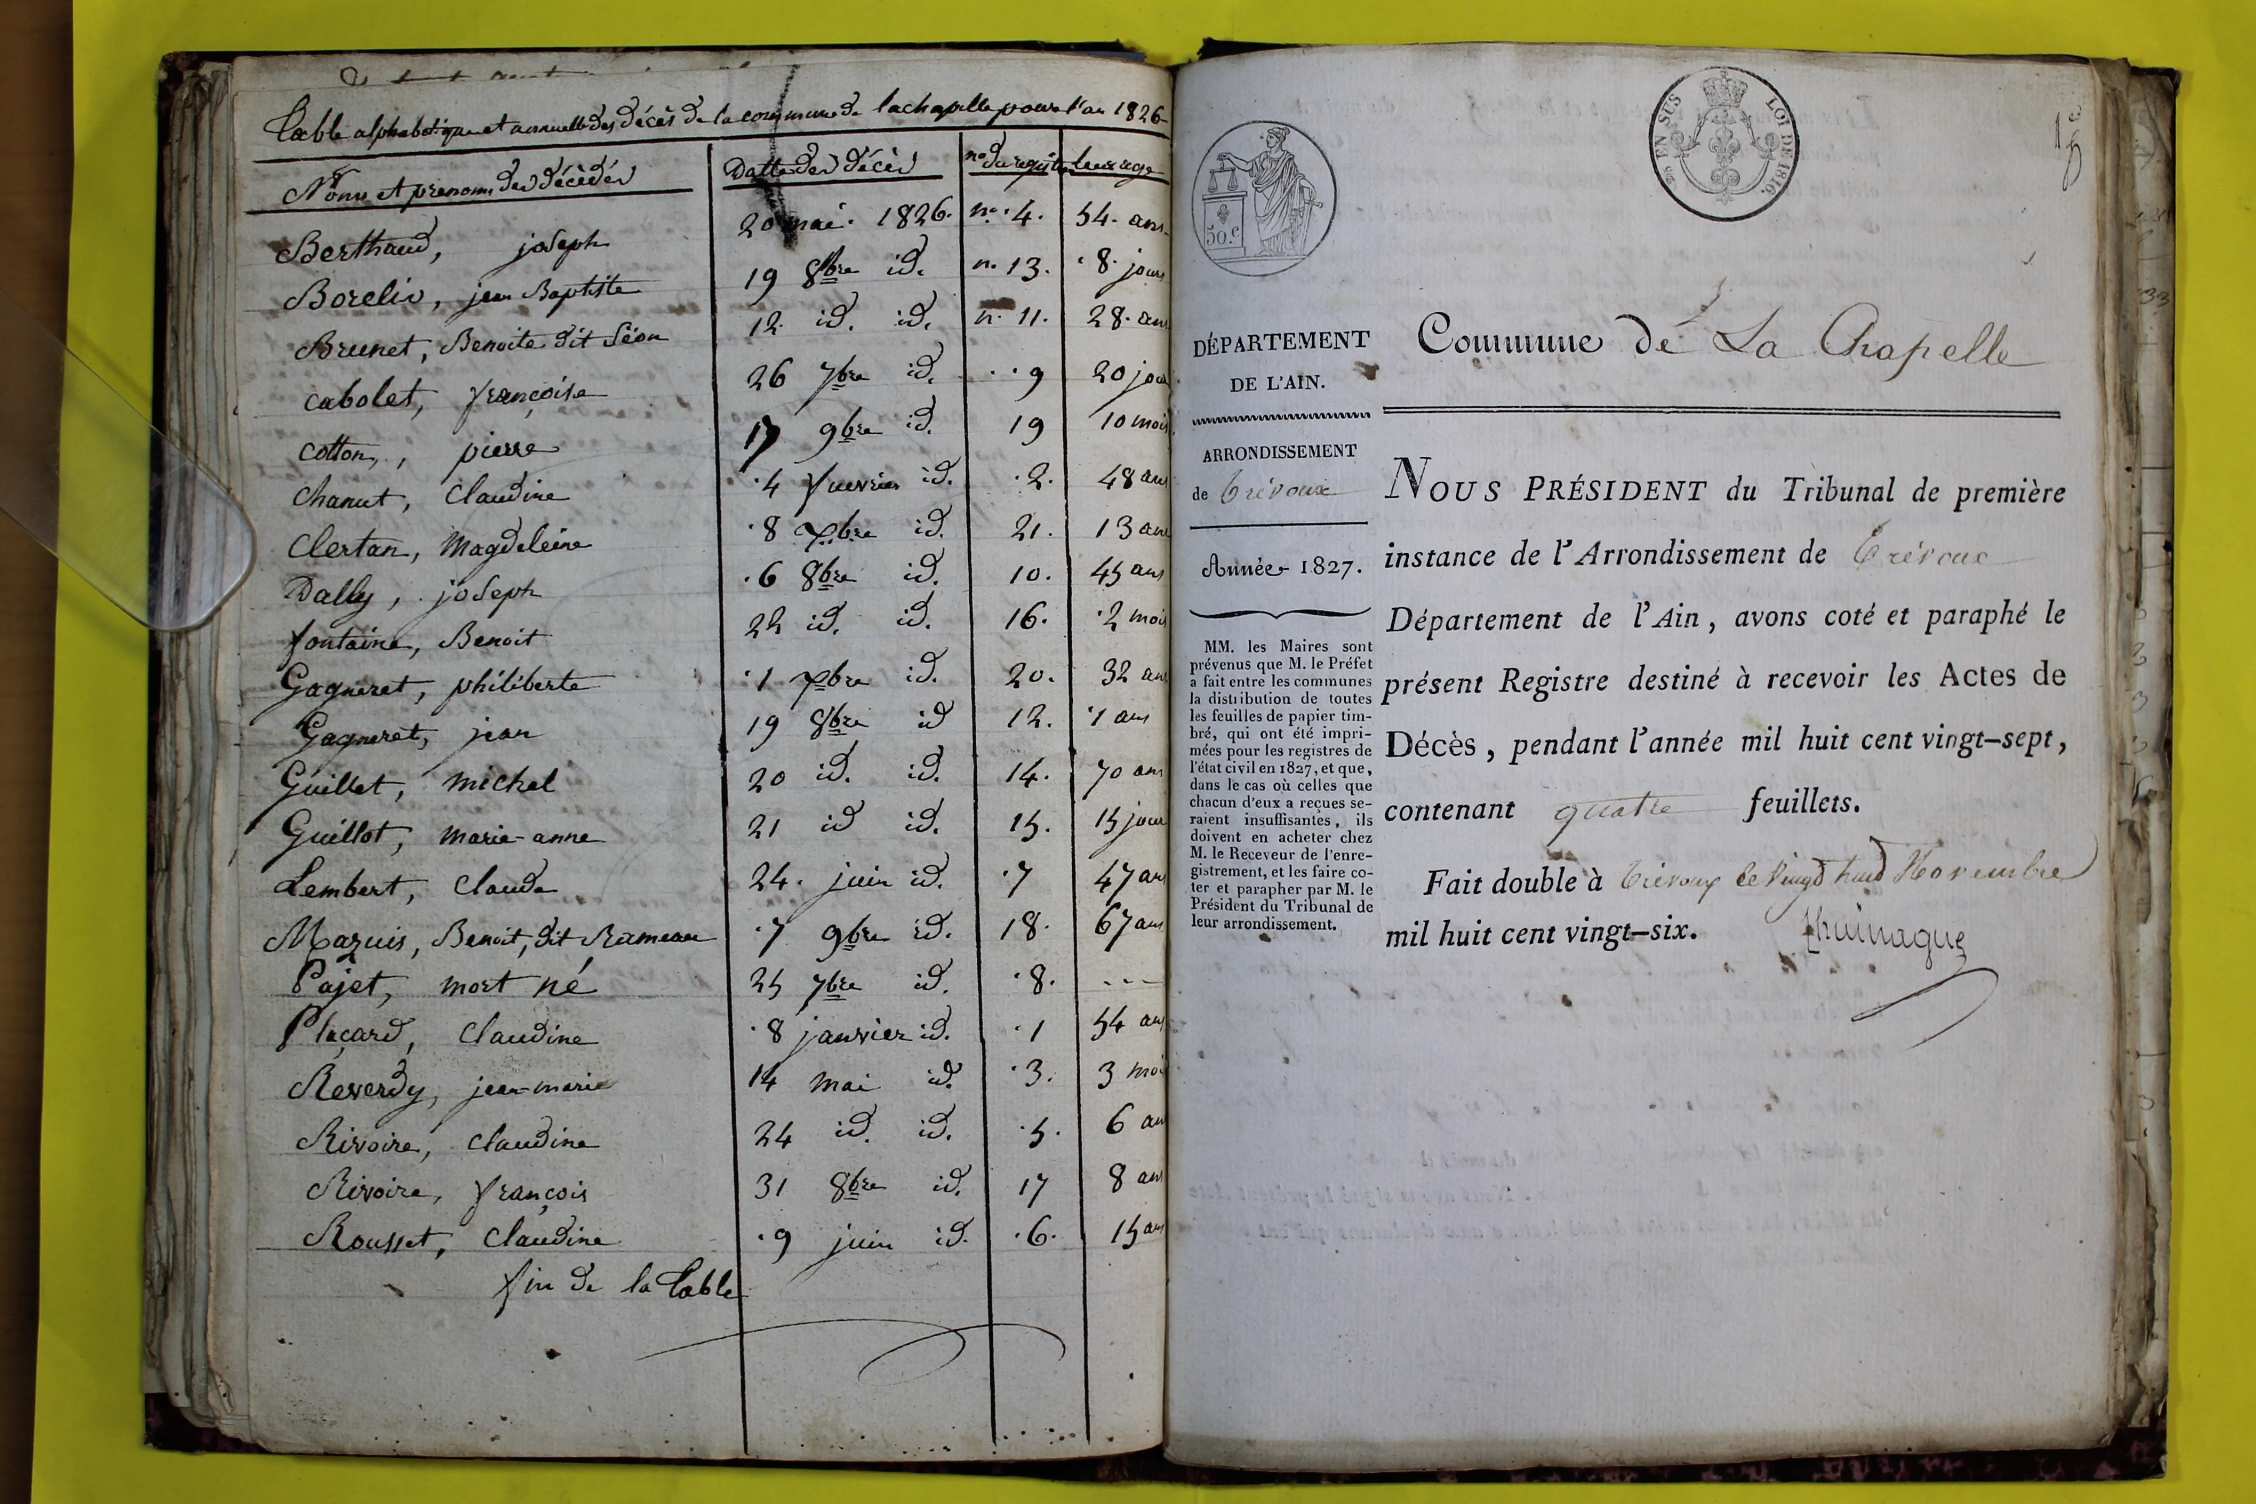 Table alphabetique et annuelle des décès de la commune de lachapelle pour l'an 1826
Noms et prenoms des décédés Datte des décès no du registre leur age
Berthaud, joseph 20 mai 1826. no. 4. 54. ans
Borelin, jean Baptiste 19 8bre id. n. 13. 8. jours
Brunet, Benoite dit Léon 12 id. id. n. 11. 28. ans
Cabolet, françoise 26 7bre id. 9 20 jours
Cotton, pierre 17 9bre id. 19 10 mois
Chanut, Claudine 4 fuevrier id. 2. 48 ans
Clertan, Magdeleine 8 xbre id. 21. 13 ans
Dally, joseph 6 8bre id. 10. 45 ans
fontaine, Benoit 22 id. id. 16. 2 mois
Gagneret, philiberte 1 xbre id. 20. 32 ans
Gagneret, jean 19 8bre id 12. 1 ans
Guillet, michel 20 id. id. 14. 70 ans
Guillot, marie-anne 21 id id. 15. 15 jours
Lembert, Claude 24. juin id. 7 47 ans
Mazuis, Benoit, dit Rameau 7 9bre id. 18. 67 ans
Pajet, mort né 25 7bre id. 8. ---
Plaçard, Claudine 8 janvier id. 1 54 ans
Reverdy, jean-marie 14 mai id. 3. 3 mois
Rivoire, Claudine 24 id. id. 5. 6 ans
Rivoire, françois 31 8bre id. 17 8 ans
Rousset, Claudine 9 juin id. 6. 15 ans
fin de la table
EN SUS LOI DE 1816.
50.c
DÉPARTEMENT
DE L'AIN.
ARRONDISSEMENT
de Trévoux
Année 1827.
MM. les Maires sont
prévenus que M. le Préfet
a fait entre les communes
la distribution de toutes
les feuilles de papier tim-
bré, qui ont été impri-
mées pour les registres de
l'état civil en 1827, et que,
dans le cas où celles que
chacun d'eux a reçues se-
raient insuffisantes, ils
doivent en acheter chez
M. le Receveur de l'enre-
gistrement, et les faire co-
ter et parapher par M. le
Président du Tribunal de
leur arrondissement.
Commune de La Chapelle
NOUS PRÉSIDENT du Tribunal de première
instance de l'Arrondissement de Trévoux
Département de l'Ain, avons coté et paraphé le
présent Registre destiné à recevoir les Actes de
Décès, pendant l'année mil huit cent vingt-sept,
contenant quatre feuillets.
Fait double à Trévoux le vingt huit Novembre
mil huit cent vingt-six.